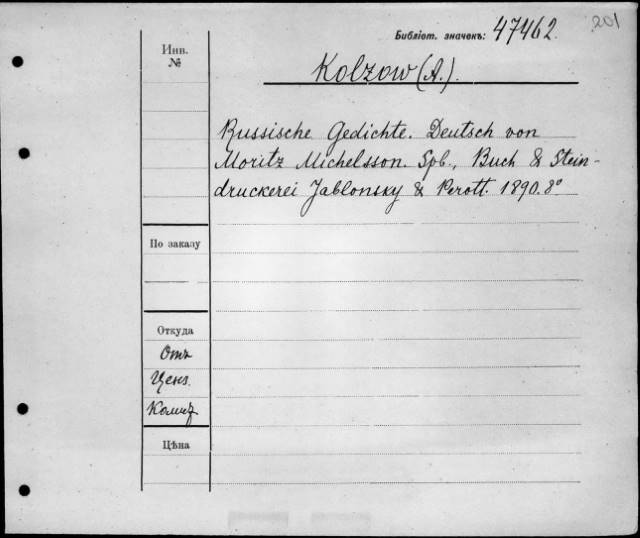 201
Библіот. значекъ: 47462.
Инв.
№
Kolzow (A.).
Russische Gedichte. Deutsch von
Moritz Michelsson. Spb., Buch & Stein-
druckerei Jablonsky & Perott. 1890. 8°
По заказу
Откуда
Отъ
Ценз.
Комит
Цѣна